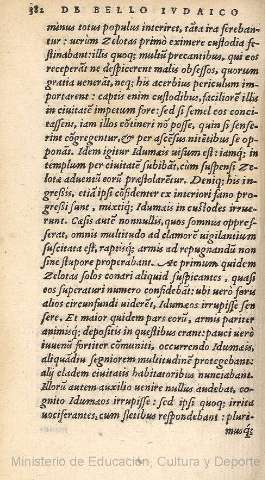 382 DE BELLO IVDAICO
minus totus populus interiret, tāta ira ferebantur
: uerùm Zelotas primò eximere custodia festinabant
: illis quoq; multū precantibus, qui eos
receperāt ne despicerent malis obsessos, quorum
gratia uenerāt, neq; his acerbius periculum importarent
: captis enim custodibus, faciliorē illis
in ciuitatē impetum fore: sed si semel eos concitassent,
iam illos cōtineri nō posse, quin si senserint
cōgregentur, & per ascēsus nitētibus se opponāt.
Idem igitur Idumæis uisum est: iamq; in
templum per ciuitatē subibāt, cum suspensi Zelotæ
aduentū eorū præstolarētur. Deniq; his ingressis,
etiā ipsi cōfidenter ex interiori fano progressi
sunt, mixtiq; Idumæis in custodes irruerunt.
Cæsis autē nonnullis, quos somnus oppresserat,
omnis multitudo ad clamorē uigilantium
suscitata est, raptisq; armis ad repugnādū non
sine stupore properabant. Ac primum quidem
Zelotas solos conari aliquid suspicantes, quasi
eos superaturi numero confidebāt: ubi uerò foris
alios circunfundi uiderēt, Idumæos irrupisse sensere.
Et maior quidem pars eorū, armis pariter
animisq; depositis in questibus erant: pauci uerò
iuuenū fortiter cōmuniti, occurrendo Idumæis,
aliquādiu segniorem multitudinē protegebant:
alij cladem ciuitatis habitatoribus nunciabant.
Illorū autem auxilio uenire nullus audebat, cognito
Idumæos irrupisse: sed ipsi quoq; irrita
uociferantes, cum fletibus respondebant: plurimusq;
Ministerio de Educación, Cultura y Deporte